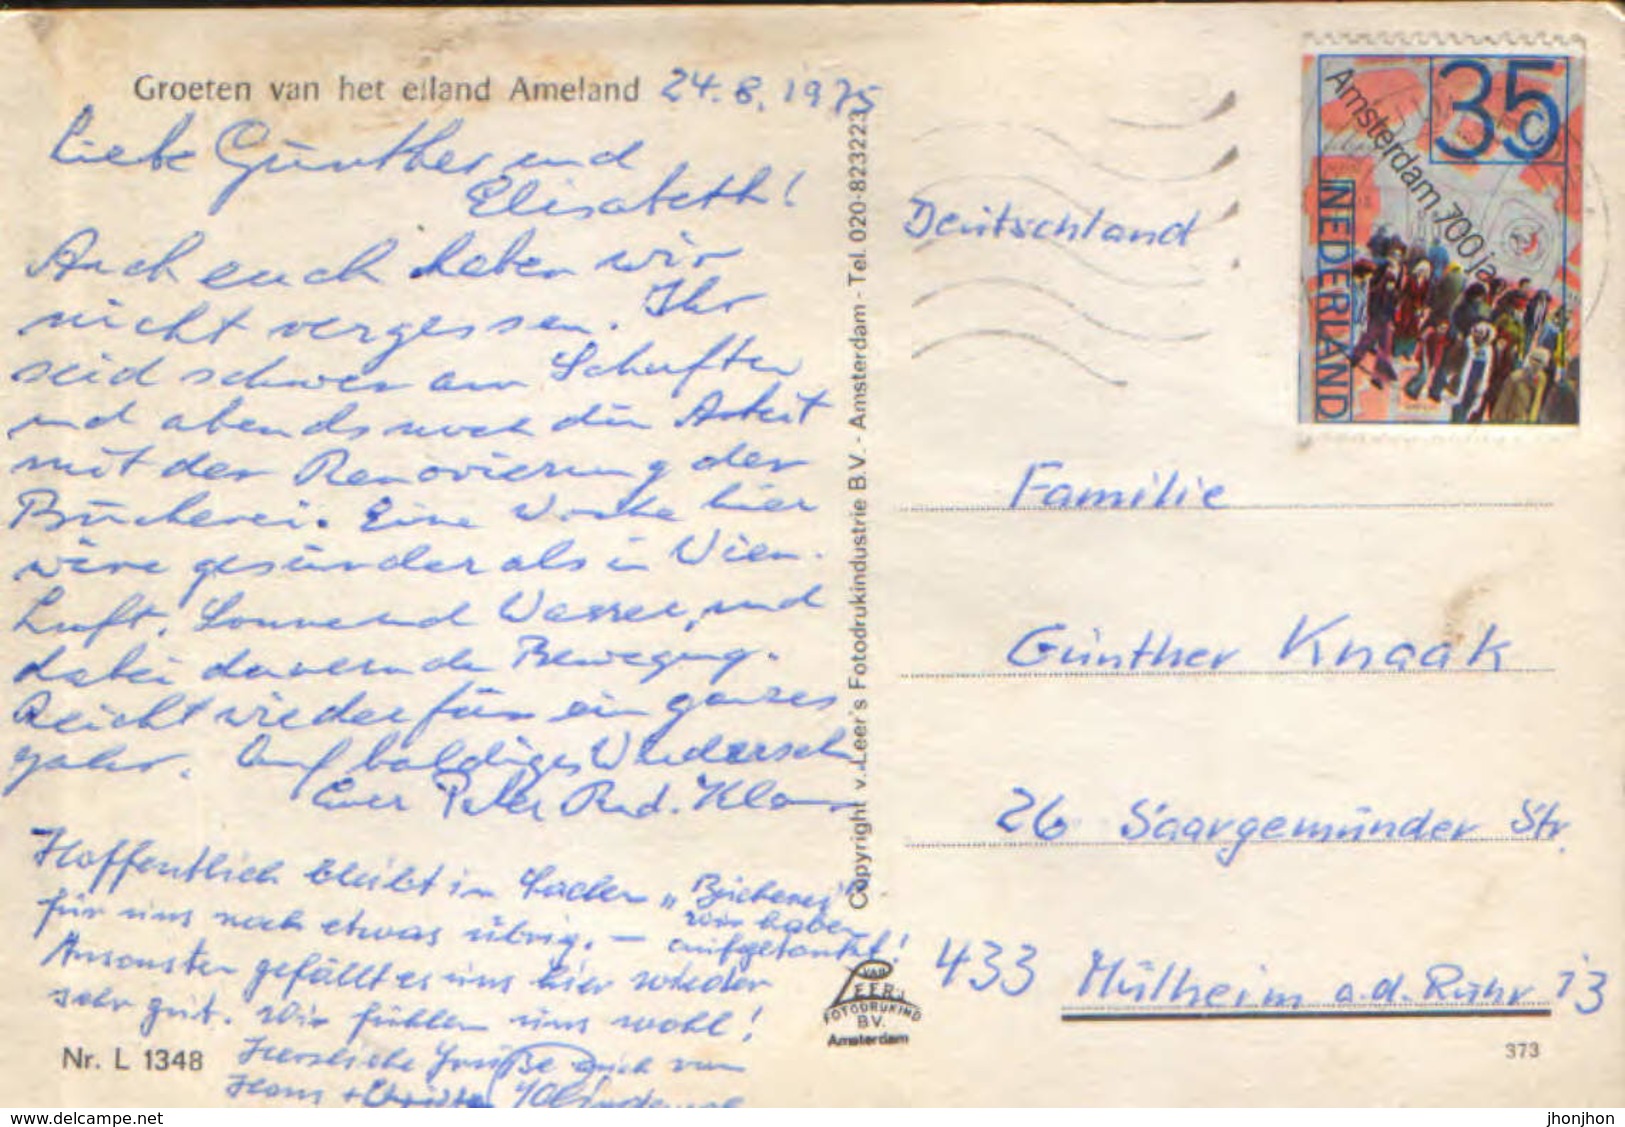 Groeten van het eiland Ameland 24.8.1975
Liebe Günther und
Elisabeth!
Auch euch haben wir
nicht vergessen. Ihr
seid schwer am Schuften
und abends noch die Arbeit
mit der Renovierung der
Bücherei. Eine Woche hier
wäre gesünder als in Wien.
Luft, Sonne und Wasser, und
dabei dauernde Bewegung.
Reicht wieder für ein ganzes
Jahr. Auf baldiges Wiederseh
Euer Peter
Hoffentlich bleibt in Sachen „Bücherei"
für uns noch etwas übrig. — wir haben
aufgetankt!
Ansonsten gefällt es uns hier wieder
sehr gut. Wir fühlen uns wohl!
Herzliche Grüße auch von
Hans +
Nr. L 1348
Copyright v. Leer's Fotodrukindustrie B.V. - Amsterdam - Tel. 020-823223
VAN
LEER'S
FOTODRUKIND
B.V.
Amsterdam
35
C
Amsterdam 700 ja
NEDERLAND
Deutschland
Familie
Günther Knaak
26 Saargemünder Str.
433 Mülheim a.d. Ruhr 13
373
delcampe.net
jhonjhon